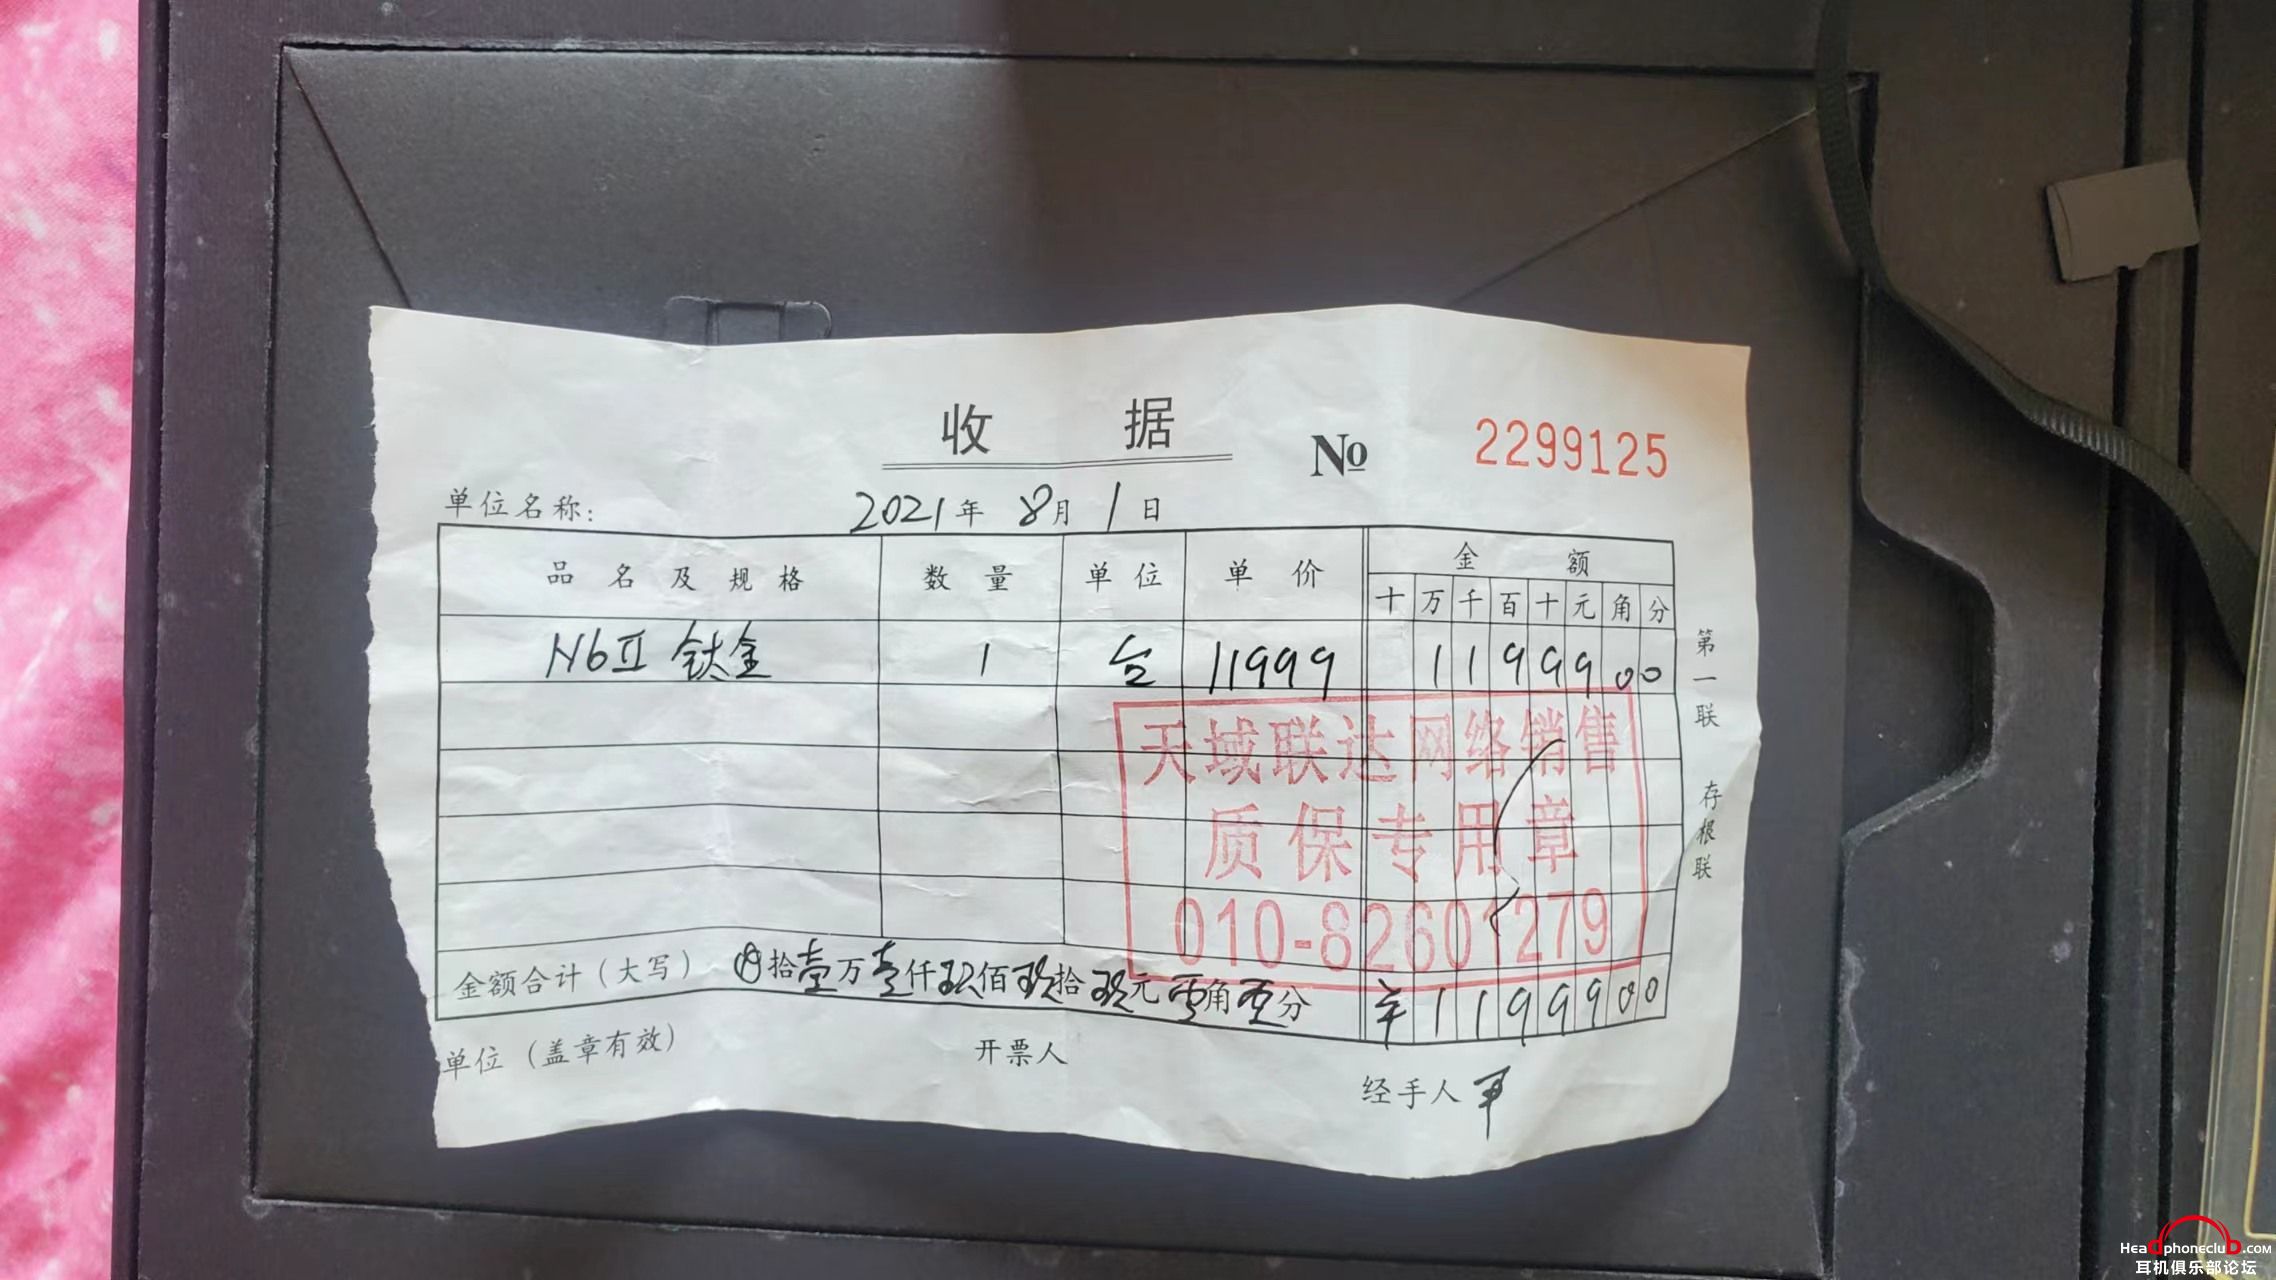 收 据
№ 2299125
单位名称: 2021年 8月 1日
品名及规格 数量 单位 单价 金额
十 万 千 百 十 元 角 分
N6Ⅱ 钛金 1 台 11999 1 1 9 9 9 0 0
第一联 存根联
天域联达网络销售
质保专用章
010-82601279
金额合计(大写) 拾壹万壹仟玖佰玖拾玖元零角零分 ¥ 1 1 9 9 9 0 0
单位(盖章有效) 开票人 经手人
Headphoneclub.com
耳机俱乐部论坛